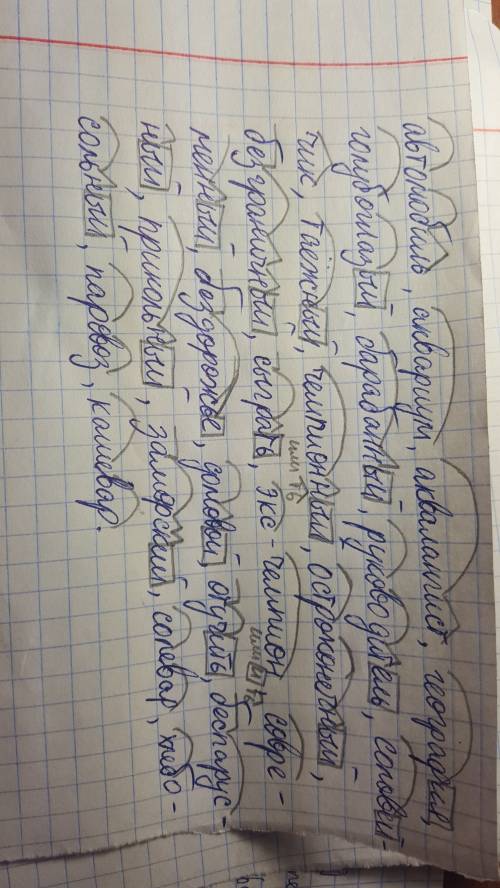 автомобиль, аквариум, аквалангист, география,
голубоглазый, барабанный, руководитель, соловей-
чик, таёжный, чемпионный, остроконечный,
или ть
безграничный, сыграть, экс-чемпион, совре-
или ить
менный, бездорожье, домовой, отучить, беспарус-
ный, прикольный, заморский, солевар, хлебо-
сольный, паровоз, кашевар.